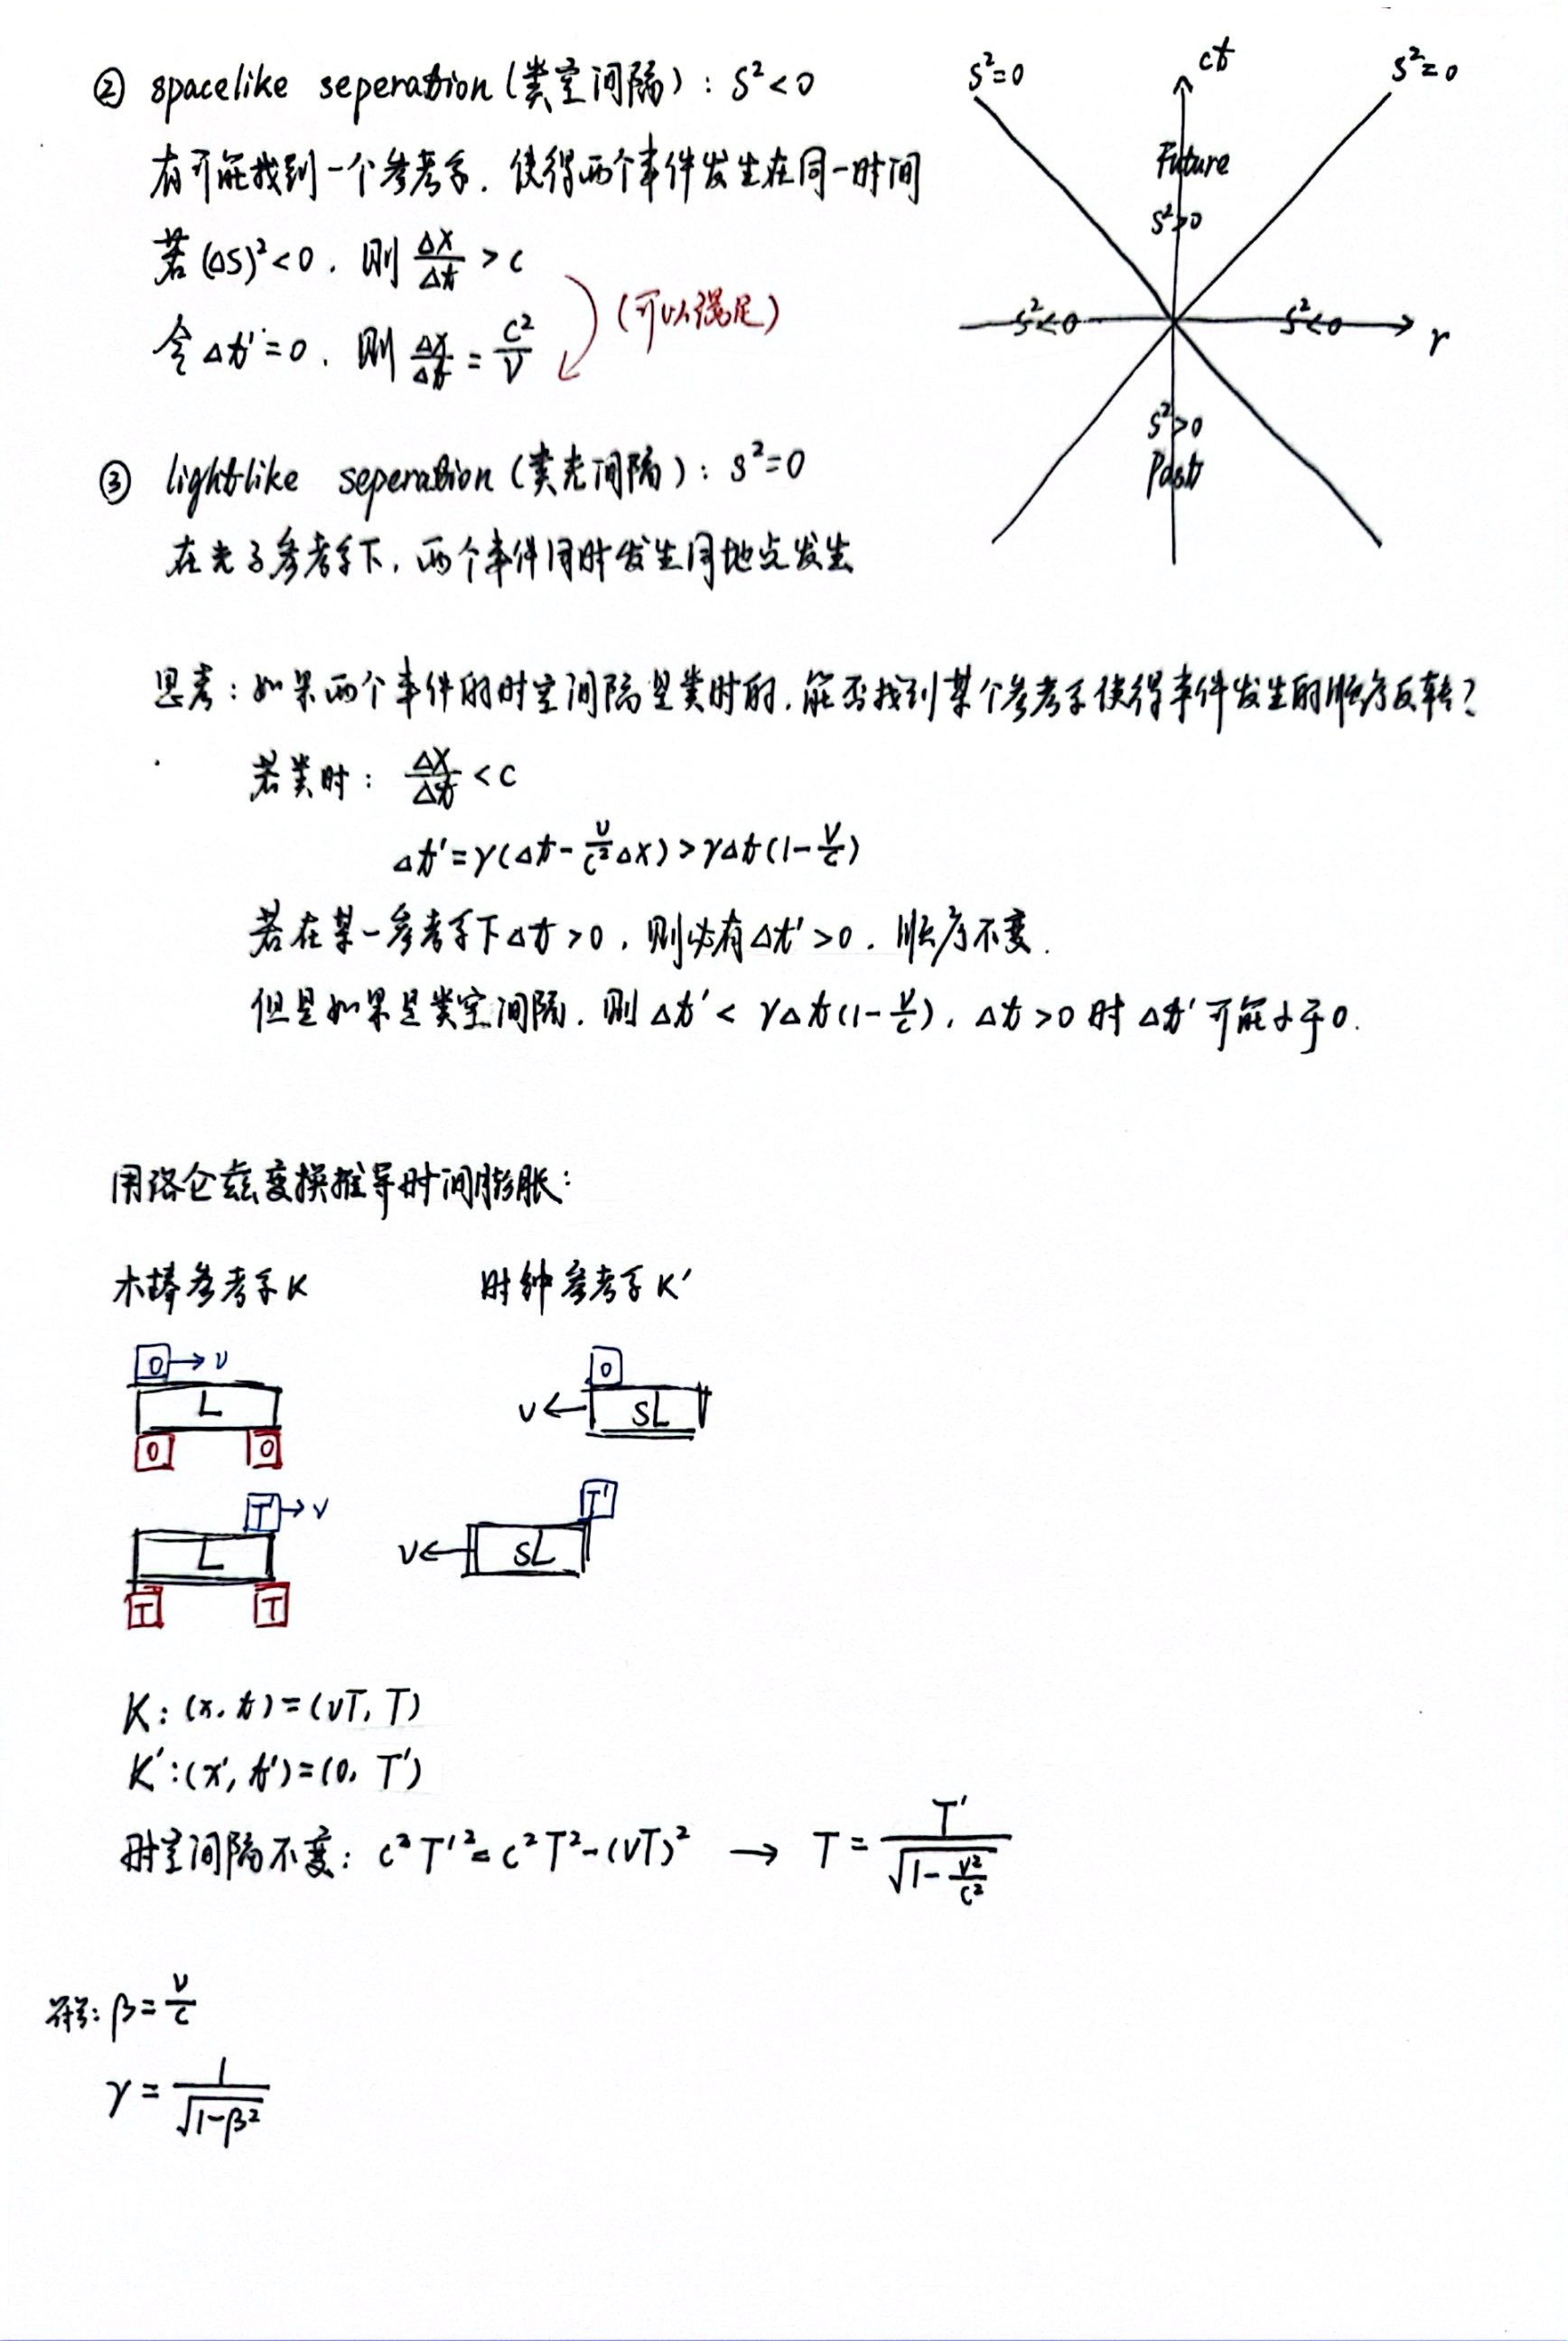 ② spacelike seperation (类空间隔) : S²<0
有可能找到一个参考系. 使得两个事件发生在同一时间
若 (ΔS)²<0 . 则 Δx/Δt > c
(可以满足)
令 Δt'=0 . 则 Δx/Δt = c²/v
S²=0
ct
S²=0
Future
S²>0
S²<0
S²<0
r
S²>0
Past
③ lightlike seperation (类光间隔) : S²=0
在光子参考系下, 两个事件同时发生同地点发生
思考: 如果两个事件的时空间隔是类时的, 能否找到某个参考系使得事件发生的顺序反转?
若类时: Δx/Δt < c
Δt'=γ(Δt-v/c²Δx)>γΔt(1-v/c)
若在某一参考系下Δt>0, 则必有Δt'>0. 顺序不变.
但是如果是类空间隔. 则 Δt' < γΔt(1-v/c), Δt>0 时 Δt' 可能小于0.
用洛仑兹变换推导时间膨胀:
木棒参考系K 时钟参考系K'
0 → v
L
0 0
0
v ← SL
T' → v
L
T T
T'
v ← SL
K: (x, t)=(vT, T)
K': (x', t')=(0, T')
时空间隔不变: c²T'²=c²T²-(vT)² → T = T'/√(1-v²/c²)
符号: β=v/c
γ = 1/√(1-β²)